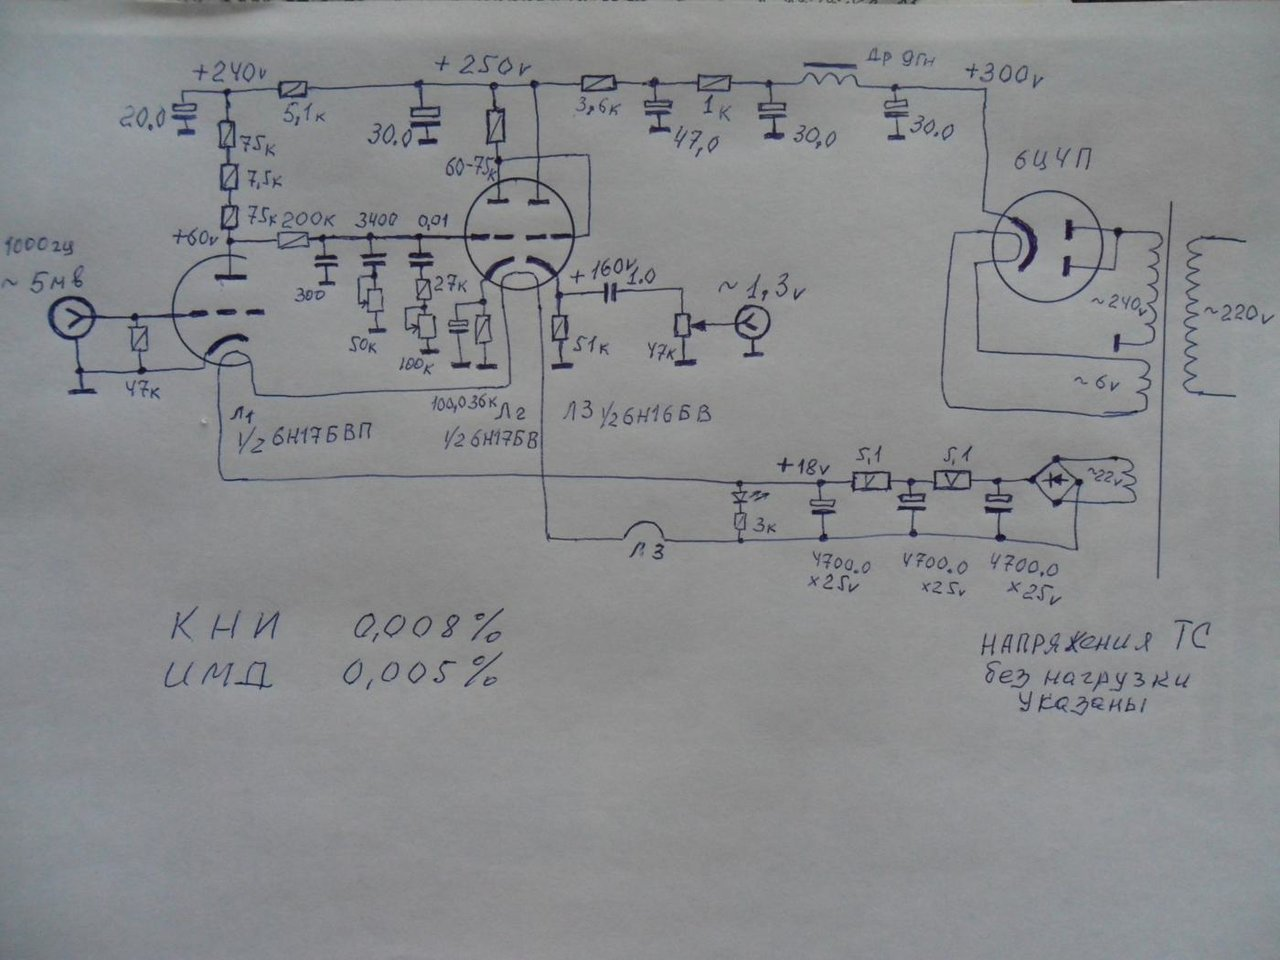 +240v
+250v
Др 9Гн
+300v
20.0
5,1к
30.0
3,6к
47,0
1к
30,0
30.0
75к
7,5к
75к
60-75к
6Ц4П
1000гц
~5мв
+60v
200к
3400
0,01
300
50к
27к
100к
+160v
1.0
~1,3v
51к
47к
~240v
~220v
~6v
47к
Л1
1/2 6Н17БВП
100,0
36к
Л2
1/2 6Н17БВ
Л3 1/2 6Н16БВ
+18v
5,1
5,1
~22v
3к
Л3
4700.0
x25v
4700.0
x25v
4700,0
x25v
КНИ 0,008%
ИМД 0,005%
НАПРЯЖЕНИЯ ТС
без нагрузки
указаны